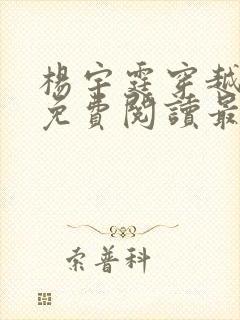 楊宇霆穿越
免費閱讀最
索普科